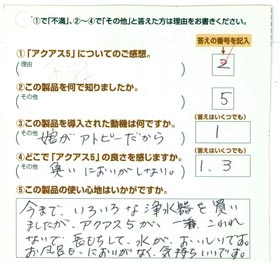 ①で「不満」、②〜④で「その他」と答えた方は理由をお書きください。
答えの番号を記入
①「アクアス5」についてのご感想。
理由
2
②この製品を何で知りましたか。
その他
5
③この製品を導入された動機は何ですか。
(答えはいくつでも)
その他
娘がアトピーだから
1
④どこで「アクアス5」の良さを感じますか。
(答えはいくつでも)
その他
臭い においがしない。
1.3
⑤この製品の使い心地はいかがですか。
今まで、いろいろな浄水器を買い
ましたが、アクアス5が、一番、こわれ
ないで、長もちして、水が、おいしいです。
お風呂も、においがなく、気持ちいいです。